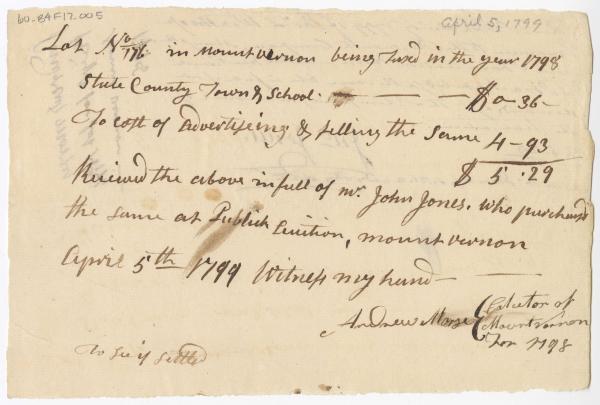 60-BAF17.005
April 5, 1799
Lot No 176 in Mount vernon being Taxed in the year 1798
State County Town & School — — — $0-36-
To cost of Advertiseing & selling the same 4-93
$5.29
Received the above in full of Mr. John Jones. who purchased
the same at Publick Auition, mount vernon
April 5th 1799 Witness my hand —
Andrew Morse Colector of
Mountvernon
For 1798
To See if Settled